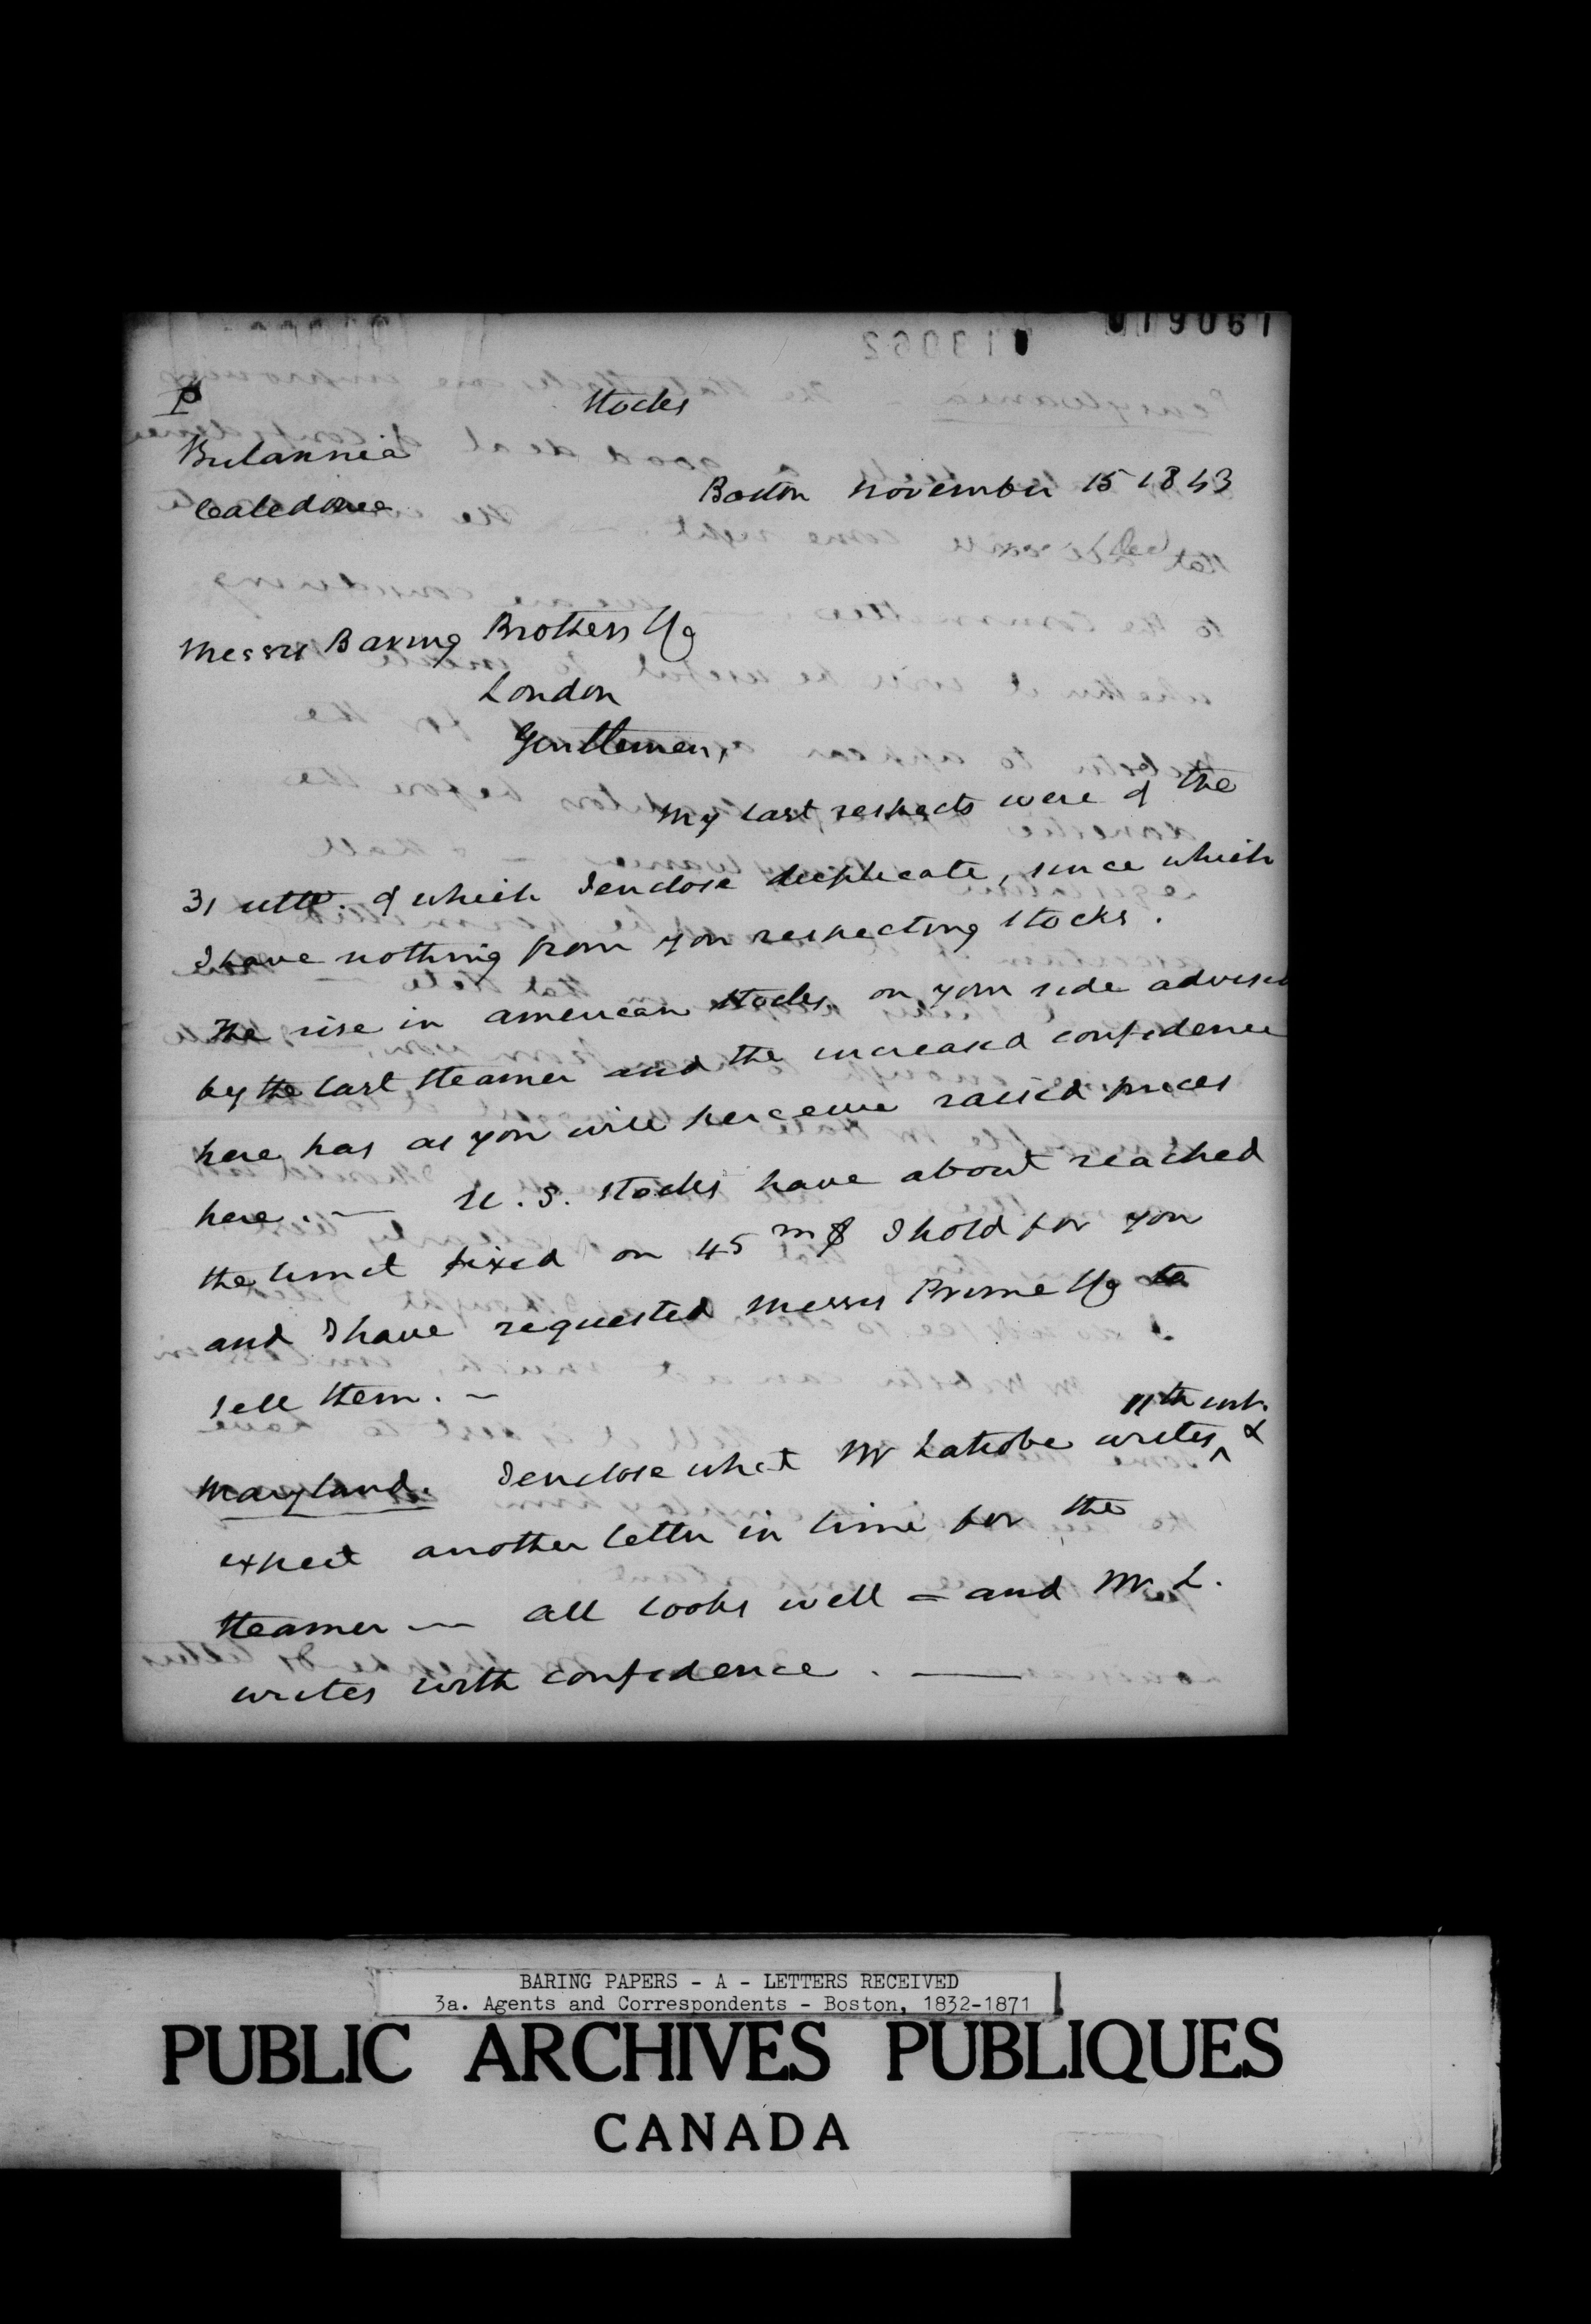 019061
P
Stocks
Britannia
Caledonia
Boston November 15 1843
Messrs Baring Brothers & Co
London
Gentlemen,
My last respects were of the
31 ulto. of which I enclose duplicate, since which
I have nothing from you respecting stocks.
The rise in american stocks on your side advised
by the last steamer and the increased confidence
here has as you will perceive raised prices
here. — U. S. stocks have about reached
the limit fixed on 45 m$ I hold for you
and I have requested Messrs Prime & Co to
sell them. —
11th inst.
Maryland. I enclose what Mr Latrobe writes ^ &
expect another letter in time for the
steamer — all looks well = and Mr L.
writes with confidence. —
BARING PAPERS - A - LETTERS RECEIVED
3a. Agents and Correspondents - Boston, 1832-1871
PUBLIC ARCHIVES PUBLIQUES
CANADA